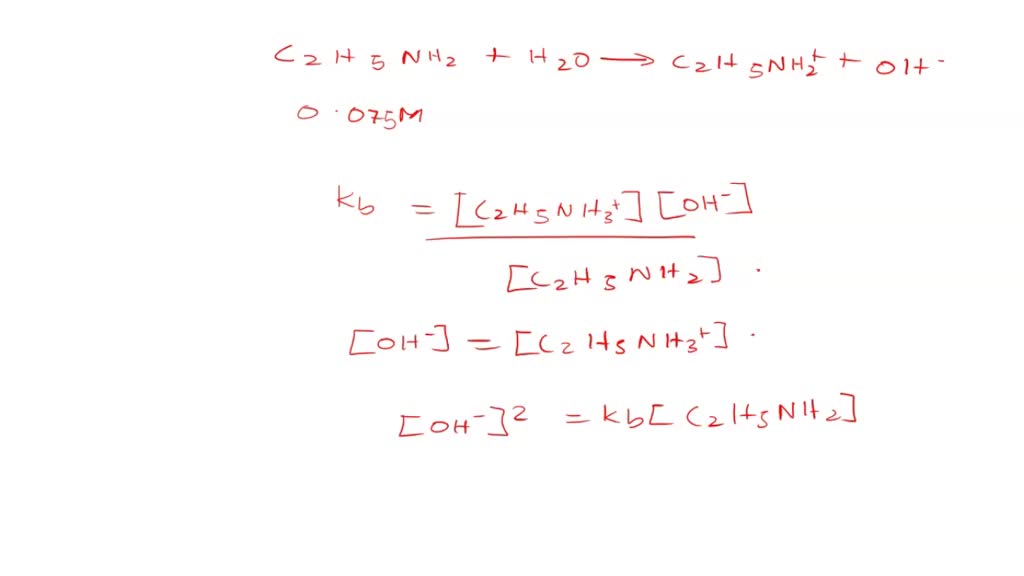 C2H5NH2 + H2O ⟶ C2H5NH2+ + OH-
0.075M
Kb = [C2H5NH3+] [OH-]
[C2H5NH2] .
[OH-] = [C2H5NH3+] .
[OH-]2 = Kb[C2H5NH2]